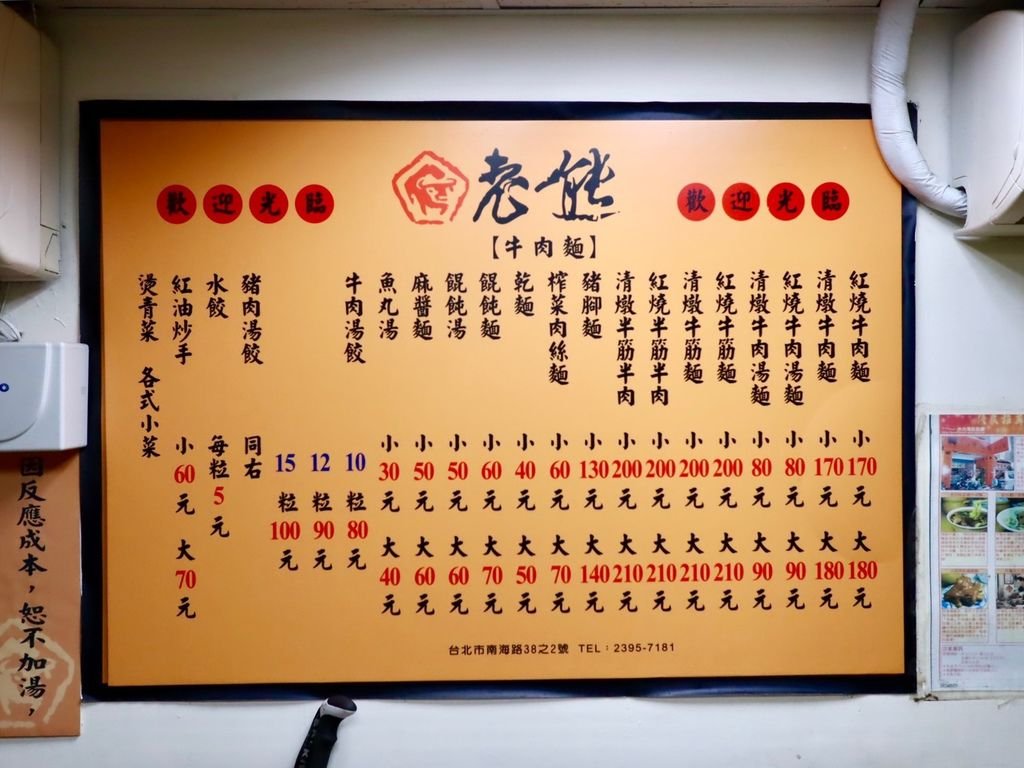 歡迎光臨
老熊
歡迎光臨
【牛肉麵】
紅燒牛肉麵 小170元 大180元
清燉牛肉麵 小170元 大180元
紅燒牛肉湯麵 小80元 大90元
清燉牛肉湯麵 小80元 大90元
紅燒牛筋麵 小200元 大210元
清燉牛筋麵 小200元 大210元
紅燒半筋半肉 小200元 大210元
清燉半筋半肉 小200元 大210元
豬腳麵 小130元 大140元
榨菜肉絲麵 小60元 大70元
乾麵 小40元 大50元
餛飩麵 小60元 大70元
餛飩湯 小50元 大60元
麻醬麵 小50元 大60元
魚丸湯 小30元 大40元
牛肉湯餃 10粒80元
12粒90元
15粒100元
豬肉湯餃 同右
水餃 每粒5元
紅油炒手 小60元 大70元
燙青菜 各式小菜
台北市南海路38之2號 TEL：2395-7181
因反應成本，恕不加湯，